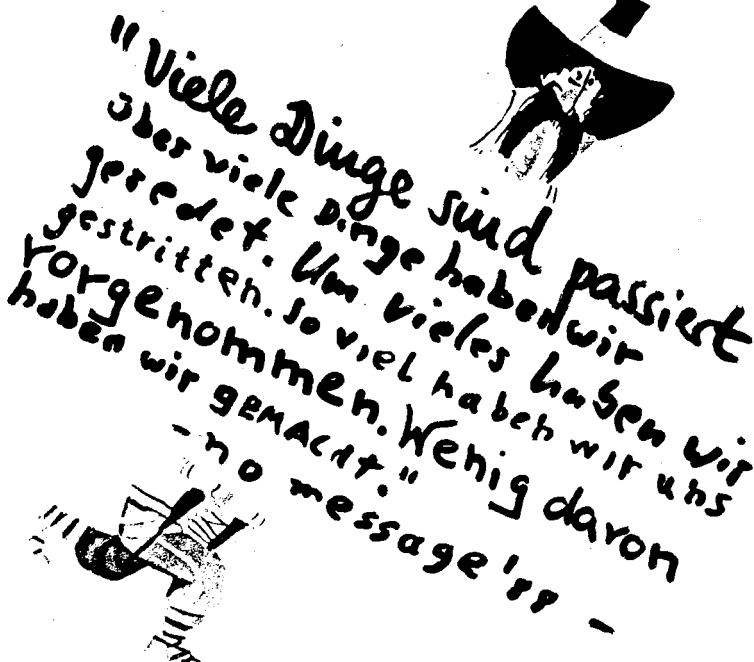 "Viele Dinge sind passiert
über viele Dinge haben wir
geredet. Um vieles haben wir
gestritten. So viel haben wir uns
vorgenommen. Wenig davon
haben wir GEMACHT."
- no message '88 -